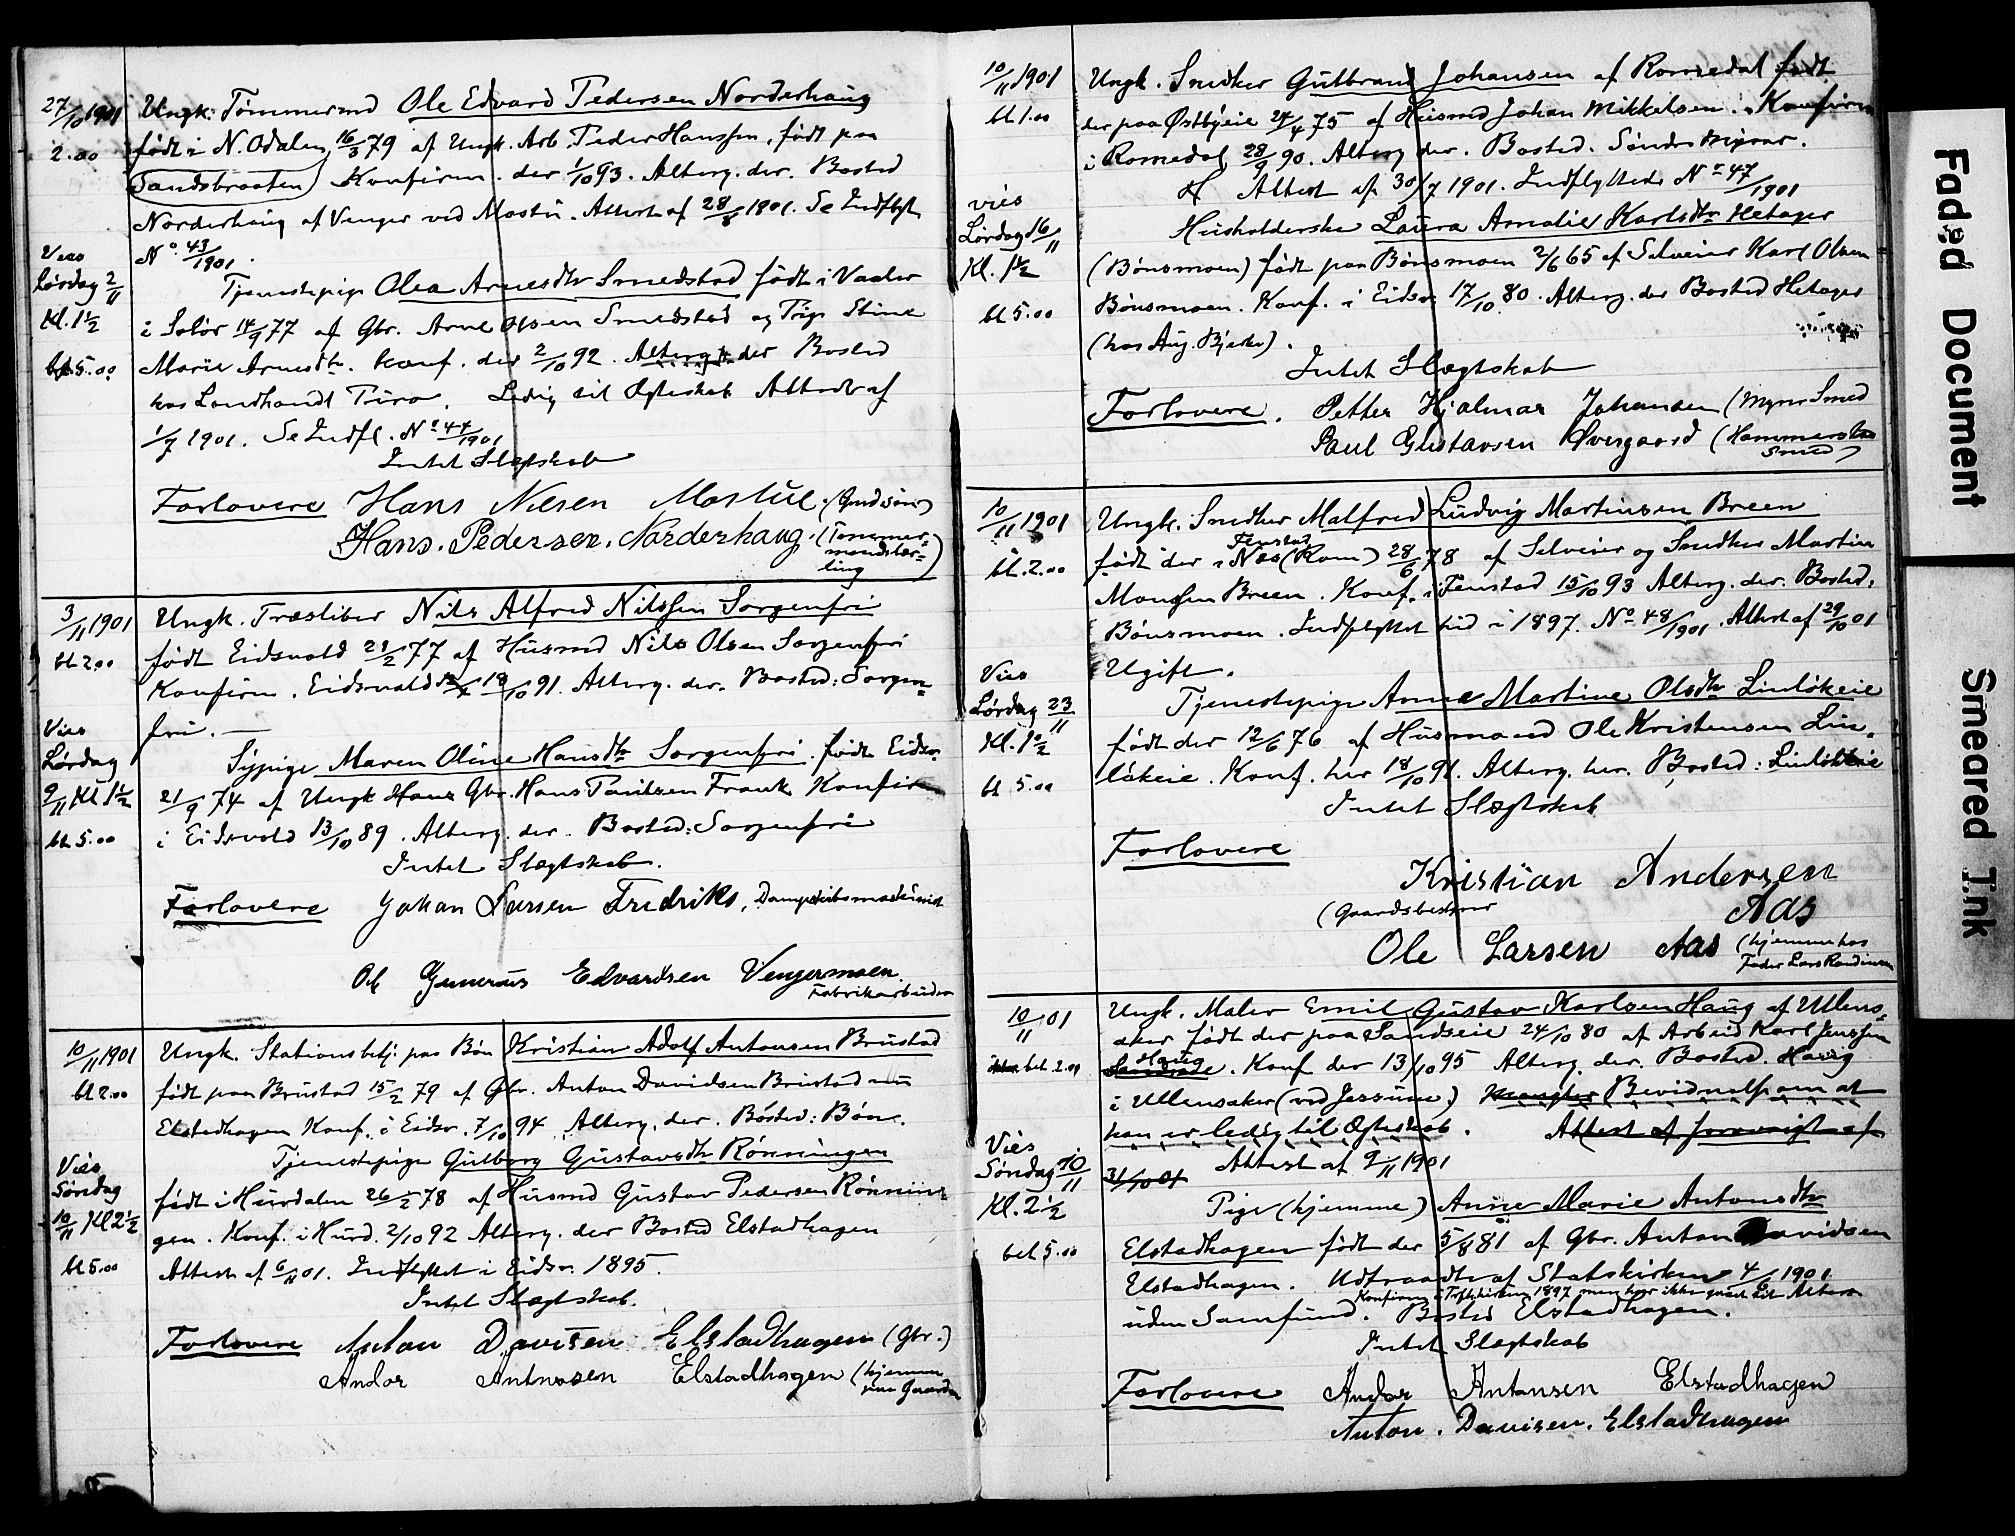 27/10 1901 Ungk. Tømmermd Ole Edvard Pedersen Norderhaug
2.00 født i N. Odalen 16/3 79 af Ungk. Arb. Peder Hanssen, født paa
Sandsbraaten) Konfirm. der 1/10 93. Alterg. der. Bosted
Norderhaug af Venger ved Mostu. Attest af 28/8 1901. Se Indflyt.
Vies No. 43/1901.
Lørdag 2/11 Tjenestepige Olea Arnesdtr Smedstad født i Vaaler
Kl. 1 1/2 i Solør 14/9 77 af Gbr. Arne Olsen Smedstad og Pige Stine
bt 5.00 Marie Arnesdtr. Konf. der 2/10 92. Alterg. der Bosted
hos Landhandl Ledig til Ægteskab Attest af
1/7 1901. Se Indfl. No 44/1901
Intet Slægtskab
Forlovere Hans Nilsen Mostue (Grdsøn)
Hans. Pedersen. Norderhaug. (Tømmer-
mandslær-
ling)
3/11 1901 Ungk. Træsliber Nils Alfred Nilssen Sorgenfri
bt 2.00 født Eidsvold 21/2 77 af Husmd Nils Olsen Sorgenfri
Konfirm. Eidsvold 18/10 91. Alterg. der. Bosted: Sorgen-
Vies fri. —
Lørdag Sypige Maren Oline Hansdtr Sorgenfri. født Eidsv.
9/11 Kl 1 1/2 21/9 74 af Ungk Hans Gbr. Hans Paulsen Frank Konfirm
bt 5.00 i Eidsvold 13/10 89. Alterg. der. Bosted: Sorgenfri
Intet Slægtskab.
Forlovere Johan Larsen Fredriks, Dampskibsmaskinist
Ole Gunerius Edvardsen Vengermoen.
Fabrikarbeider
10/11 1901 Ungk. Stationsbetj. paa Bøn Kristian Adolf Antonsen Brustad
bt 2.00 født paa Brustad 15/2 79 af Gbr. Anton Davidsen Brustad nu
Elstadhagen Konf. i Eidsv. 7/10 94. Alterg. der. Bosted: Bøn.
Vies Tjenestepige Gulborg Gustavsdtr Rønningen
Søndag født i Hurdalen 26/2 78 af Husmd Gustav Pedersen Rønnin-
10/11 Kl 2 1/2 gen. Konf. i Hurd. 2/10 92 Alterg. der Bosted Elstadhagen
bt 5.00 Attest af 6/11 01. Indflyttet i Eidsv. 1895.
Intet Slægtskab.
Forlovere Anton Davisen Elstadhagen (Gbr.)
Andor Antonsen Elstadhagen (hjemme
paa Gaarden
10/11 1901 Ungk. Snedker Gulbrand Johansen af Romedal født
bt 1.00 der paa Østbyeie 24/4 75 af Husmd Johan Mikkelsen. Konfirm
i Romedal 28/9 90. Alterg. der. Bosted.
Attest af 30/7 1901. Indflyttede No 47/1901
vies
Lørdag 16/11 Husholderske Laura Amalie Karlsdtr Hetager
Kl. 1 1/2 (Bønsmoen) født paa Bønsmoen 2/6 65 af Selveier Karl Olsen
bt 5.00 Bønsmoen. Konf. i Eidsv. 17/10 80. Alterg. der Bosted Hetager
(hos Aug. Bjerke).
Intet Slægtskab
Forlovere. Petter Hjalmar Johansen (Smed
Paul Gustavsen Øvergaard (Hammerstad
Smed)
10/11 1901 Ungk. Snedker Malfred Ludvig Martinsen Breen
Fenstad
bt. 2.00 født der i Nes (Rom) 28/6 78 af Selveier og Snedker Martin
Monssen Breen. Konf. i Fenstad 15/10 93 Alterg. der. Bosted.
Bønsmoen. Indflyttet hid i 1897. No 48/1901. Attest af 29/10 01
Vies Ugift.
Lørdag 23/11 Tjenestepige Anne Martine Olsdtr Linløkeie
Kl. 1 1/2 født der 12/6 76 af Husmand Ole Kristensen Lin-
bt 5.00 løkeie. Konf. her 18/10 91. Alterg. her. Bosted: Linløkeie
Intet Slægtskab
Forlovere
Kristian Andersen
(Gaardsbestyrer Aas
Ole Larsen Aas (hjemme hos
Fader Lars
10/11 01 Ungk. Maler Emil Gustav Karlsen Haug af Ullens-
aker født der paa Sandseie 24/10 80 af Arbeid Karl Jenssen
bet. 2.00 Haug. Konf der 13/10 95 Alterg. der. Bosted. Haug
i Ullensaker (ved Jessum) Mangler Bevidnelse om at
Vies han er ledig til Ægteskab. Attest af forevist af
Søndag 10/11 31/10 01 Attest af 9/11 1901
Kl. 2 1/2 Pige (hjemme) Anne Marie Antonsdtr
bet 5.00 Elstadhagen født der 5/8 81 af Gbr. Anton Davidsen
Elstadhagen. Udtraadt af Statskirken 4/6 1901
Konfirm i 1897 men har ikke været til Alters
uden Samfund. Bosted Elstadhagen.
Intet Slægtskab
Forlovere Andor Antonsen Elstadhagen
Anton. Davisen. Elstadhagen
Faded Document
Smeared Ink